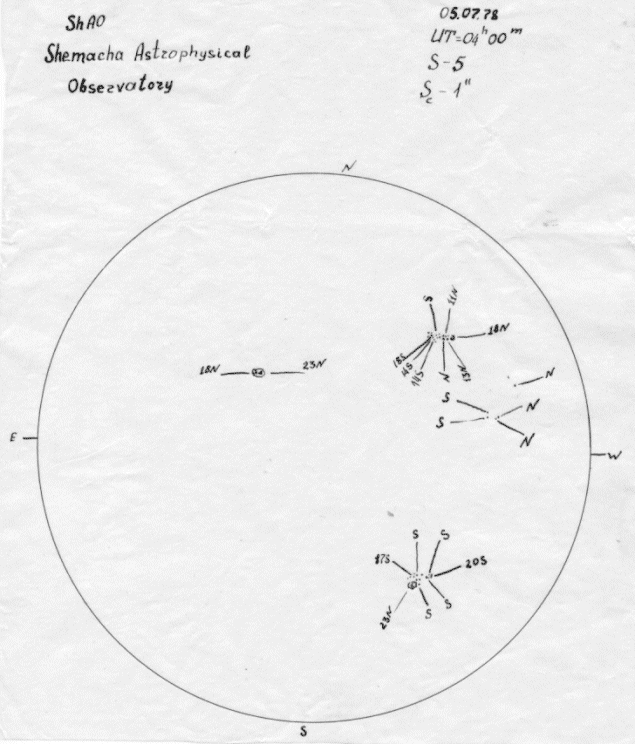 ShAO
Shemacha Astrophysical
Observatory
05.07.78
UT=04ʰ00ᵐ
S-5
Sc-1"
N
S
11N
18N
18N
23N
18S
14S
N
13N
N
S
N
E
S
N
W
S
S
17S
20S
23N
S
S
S